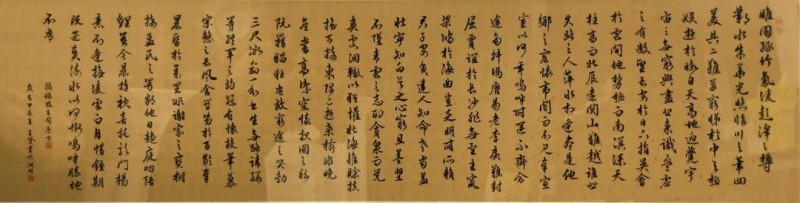 睢園綠竹氣凌彭澤之樽
鄴水朱華光照臨川之筆四
美具二難并窮睇於中天極
娛遊於暇日天高地迥覺宇
宙之無窮興盡悲來識盈虛
之有數望長安於日下指吳會
於雲間地勢極而南溟深天
柱高而北辰遠關山難越誰悲
失路之人萍水相逢盡是他
鄉之客懷帝閽而不見奉宣
室以何年嗚呼時運不齊命
途多舛馮唐易老李廣難封
屈賈誼於長沙非無聖主竄
梁鴻於海曲豈乏明時所賴
君子安貧達人知命老當益
壯寧知白首之心窮且益堅
不墜青雲之志酌貪泉而覺
爽處涸轍以猶懽北海雖賒扶
搖可接東隅已逝桑榆非晚
孟嘗高潔空懷報國之
阮籍猖狂豈效窮途之哭勃
三尺微命一介書生無路請纓
等終軍之弱冠有懷投筆慕
宗愨之長風舍簪笏於百齡奉
晨昏於萬里非謝家之寶樹
接孟氏之芳鄰他日趨庭叨陪
鯉對今晨捧袂喜托龍門楊
意不逢撫凌雲而自惜鍾期
既遇奏流水以何慚嗚呼勝地
不常
摘錄滕王閣序